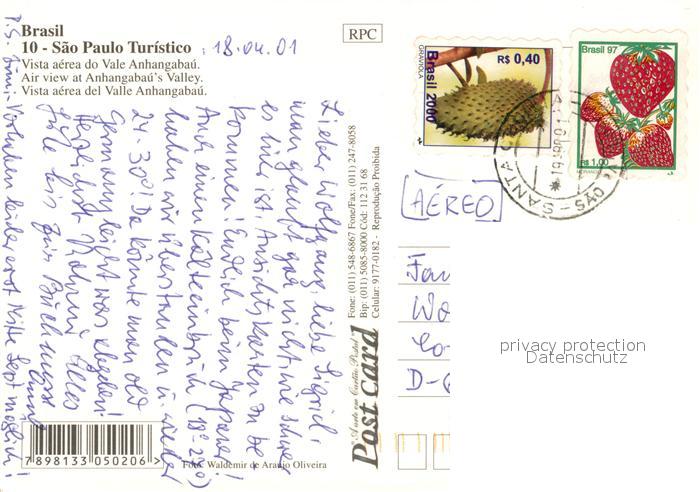 Brasil
10 - São Paulo Turístico
18.04.01
Vista aérea do Vale Anhangabaú.
Air view at Anhangabaú's Valley.
Vista aérea del Valle Anhangabaú.
RPC
GRAVIOLA
Brasil 2000
R$ 0,40
Brasil 97
R$ 1,00
MORANGO
SANTA
SÃO
Lieber Wolfgang, liebe Sigrid,
man glaubt gar nicht wie schwer
es hier ist, Ansichtskarten zu be
kommen! Endlich beim Japaner!
Auch einen Kälteeinbruch
haben wir überstanden u. wieder
24-30°! Da könnte man
Germany leicht was abgeben!
Herzlichst
Alles
bis zur
P.S.
Vorhaben leider erst Mitte Sept möglich!
Fone: (011) 548-6867 Fone/Fax: (011) 247-8058
Bip: (011) 5085-8000 Cód: 112 31 68
Celular: 9177-0182 - Reprodução Proibida
Post card
A arte em Cartão Postal
[AÉREO]
Fam
Wo
D-
privacy protection
Datenschutz
7 898133 050206 >
Foto: Waldemir de Araújo Oliveira